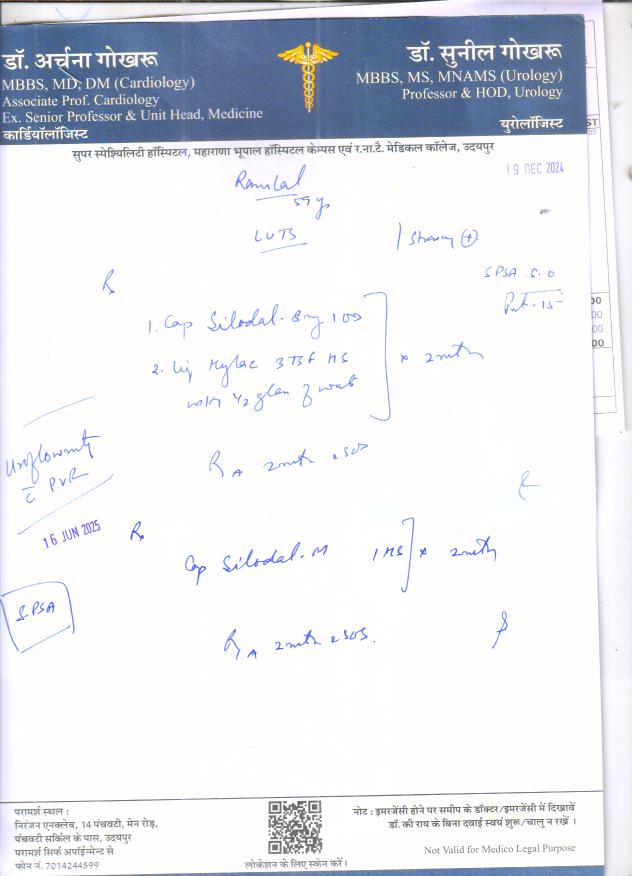 डॉ. अर्चना गोखरू
MBBS, MD, DM (Cardiology)
Associate Prof. Cardiology
Ex. Senior Professor & Unit Head, Medicine
कार्डियॉलॉजिस्ट
डॉ. सुनील गोखरू
MBBS, MS, MNAMS (Urology)
Professor & HOD, Urology
यूरोलॉजिस्ट
सुपर स्पेश्यिलिटी हॉस्पिटल, महाराणा भूपाल हॉस्पिटल केम्पस एवं र.ना.टै. मेडिकल कॉलेज, उदयपुर
19 DEC 2024
Ramlal
59 y
LUTS
SPSA
℞
1. Cap Silodal. 8mg 1 OD
2. Liq Hylac 3 TSF HS
with 1/2 glass of wat
x 2mth
Uroflowmetry
c̄ PVR
R A 2mth
16 JUN 2025
℞
Cap Silodal. M 1 HS x 2mth
S.PSA
R A 2mth c SOS.
परामर्श स्थल :
निरंजन एनक्लेव, 14 पंचवटी, मेन रोड़,
पंचवटी सर्किल के पास, उदयपुर
परामर्श सिर्फ अपॉईन्मेण्ट से
फोन नं. 7014244599
लोकेशन के लिए स्केन करें।
नोट : इमरजेंसी होने पर समीप के डॉक्टर/इमरजेंसी में दिखावें
डॉ. की राय के बिना दवाई स्वयं शुरू/चालु न रखें ।
Not Valid for Medico Legal Purpose